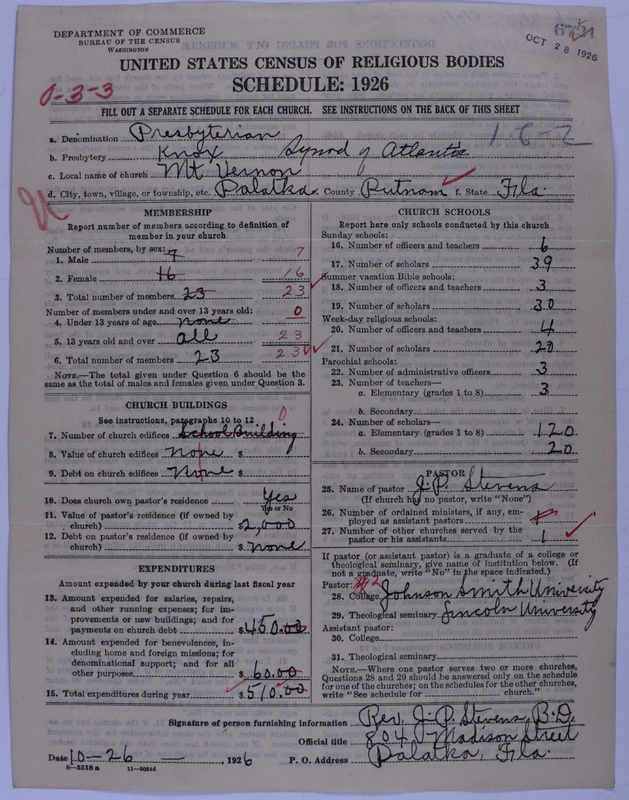 DEPARTMENT OF COMMERCE
BUREAU OF THE CENSUS
WASHINGTON
OCT 28 1926
UNITED STATES CENSUS OF RELIGIOUS BODIES
SCHEDULE: 1926
0-3-3
FILL OUT A SEPARATE SCHEDULE FOR EACH CHURCH. SEE INSTRUCTIONS ON THE BACK OF THIS SHEET
a. Denomination Presbyterian
1-6-2
b. Presbytery Knox Synod of Atlantic
c. Local name of church Mt. Vernon
d. City, town, village, or township, etc. Palatka County Putnam f. State Fla.
MEMBERSHIP
Report number of members according to definition of member in your church
Number of members, by sex:
1. Male 7 7
2. Female 16 16
3. Total number of members 23 23
Number of members under and over 13 years old:
4. Under 13 years of age none 0
5. 13 years old and over all 23
6. Total number of members 23 23
NOTE.—The total given under Question 6 should be the same as the total of males and females given under Question 3.
CHURCH BUILDINGS
See instructions, paragraphs 10 to 12
7. Number of church edifices School Building 0
8. Value of church edifices None $
9. Debt on church edifices None $
10. Does church own pastor's residence Yes
Yes or No
11. Value of pastor's residence (if owned by church) $2,000
12. Debt on pastor's residence (if owned by church) $ none
EXPENDITURES
Amount expended by your church during last fiscal year
13. Amount expended for salaries, repairs, and other running expenses; for improvements or new buildings; and for payments on church debt $450.00
14. Amount expended for benevolences, including home and foreign missions; for denominational support; and for all other purposes $60.00
15. Total expenditures during year $510.00
CHURCH SCHOOLS
Report here only schools conducted by this church
Sunday schools:
16. Number of officers and teachers 6
17. Number of scholars 39
Summer vacation Bible schools:
18. Number of officers and teachers 3
19. Number of scholars 30
Week-day religious schools:
20. Number of officers and teachers 4
21. Number of scholars 20
Parochial schools:
22. Number of administrative officers 3
23. Number of teachers—
a. Elementary (grades 1 to 8) 3
b. Secondary
24. Number of scholars—
a. Elementary (grades 1 to 8) 120
b. Secondary 20
PASTOR
25. Name of pastor J. P. Stevens
(If church has no pastor, write "None")
26. Number of ordained ministers, if any, employed as assistant pastors
27. Number of other churches served by the pastor or his assistants 1
If pastor (or assistant pastor) is a graduate of a college or theological seminary, give name of institution below. (If not a graduate, write "No" in the space indicated.)
Pastor:
28. College Johnson Smith University
29. Theological seminary Lincoln University
Assistant pastor:
30. College
31. Theological seminary
NOTE.—Where one pastor serves two or more churches, Questions 28 and 29 should be answered only on the schedule for one of the churches; on the schedules for the other churches, write "See schedule for church."
Signature of person furnishing information Rev. J. P. Stevens, B.D.
Official title 804 Madison Street
Date 10-26, 1926 P. O. Address Palatka, Fla.
8-5518a